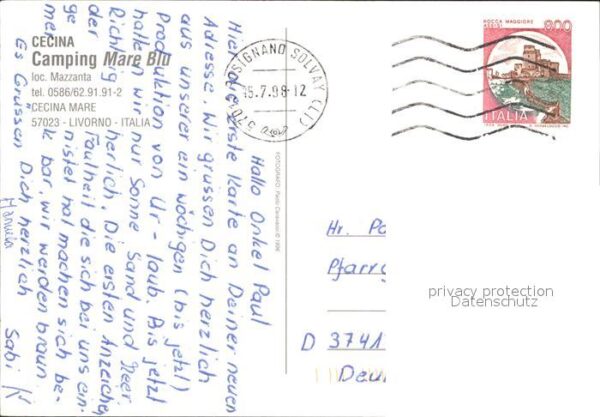 CECINA
Camping Mare Blu
loc. Mazzanta
tel. 0586/62.91.91-2
CECINA MARE
57023 - LIVORNO - ITALIA
Hallo Onkel Paul
Hier die erste Karte an Deiner neuen
Adresse. Wir grüssen Dich herzlich
aus unserer ein wöchigen (bis jetzt)
Produktion von Ur-laub. Bis jetzt
hatten wir nur Sonne Sand und Meer.
Richtig herlich. Die ersten Anzeichen
der Faulheit die sich bei uns ein-
ge nistet hat machen sich be-
mer k bar, wir werden braun
Es Grüssen Dich herzlich
Sabi
FOTOGRAFO: Paolo
© 1996
SIGNANO SOLVAY (LI)
5701
15.7.98-12
ROCCA MAGGIORE
ASSISI
800
ITALIA
Hr. Pa
Pfarrg
D 3741
Deu
privacy protection
Datenschutz